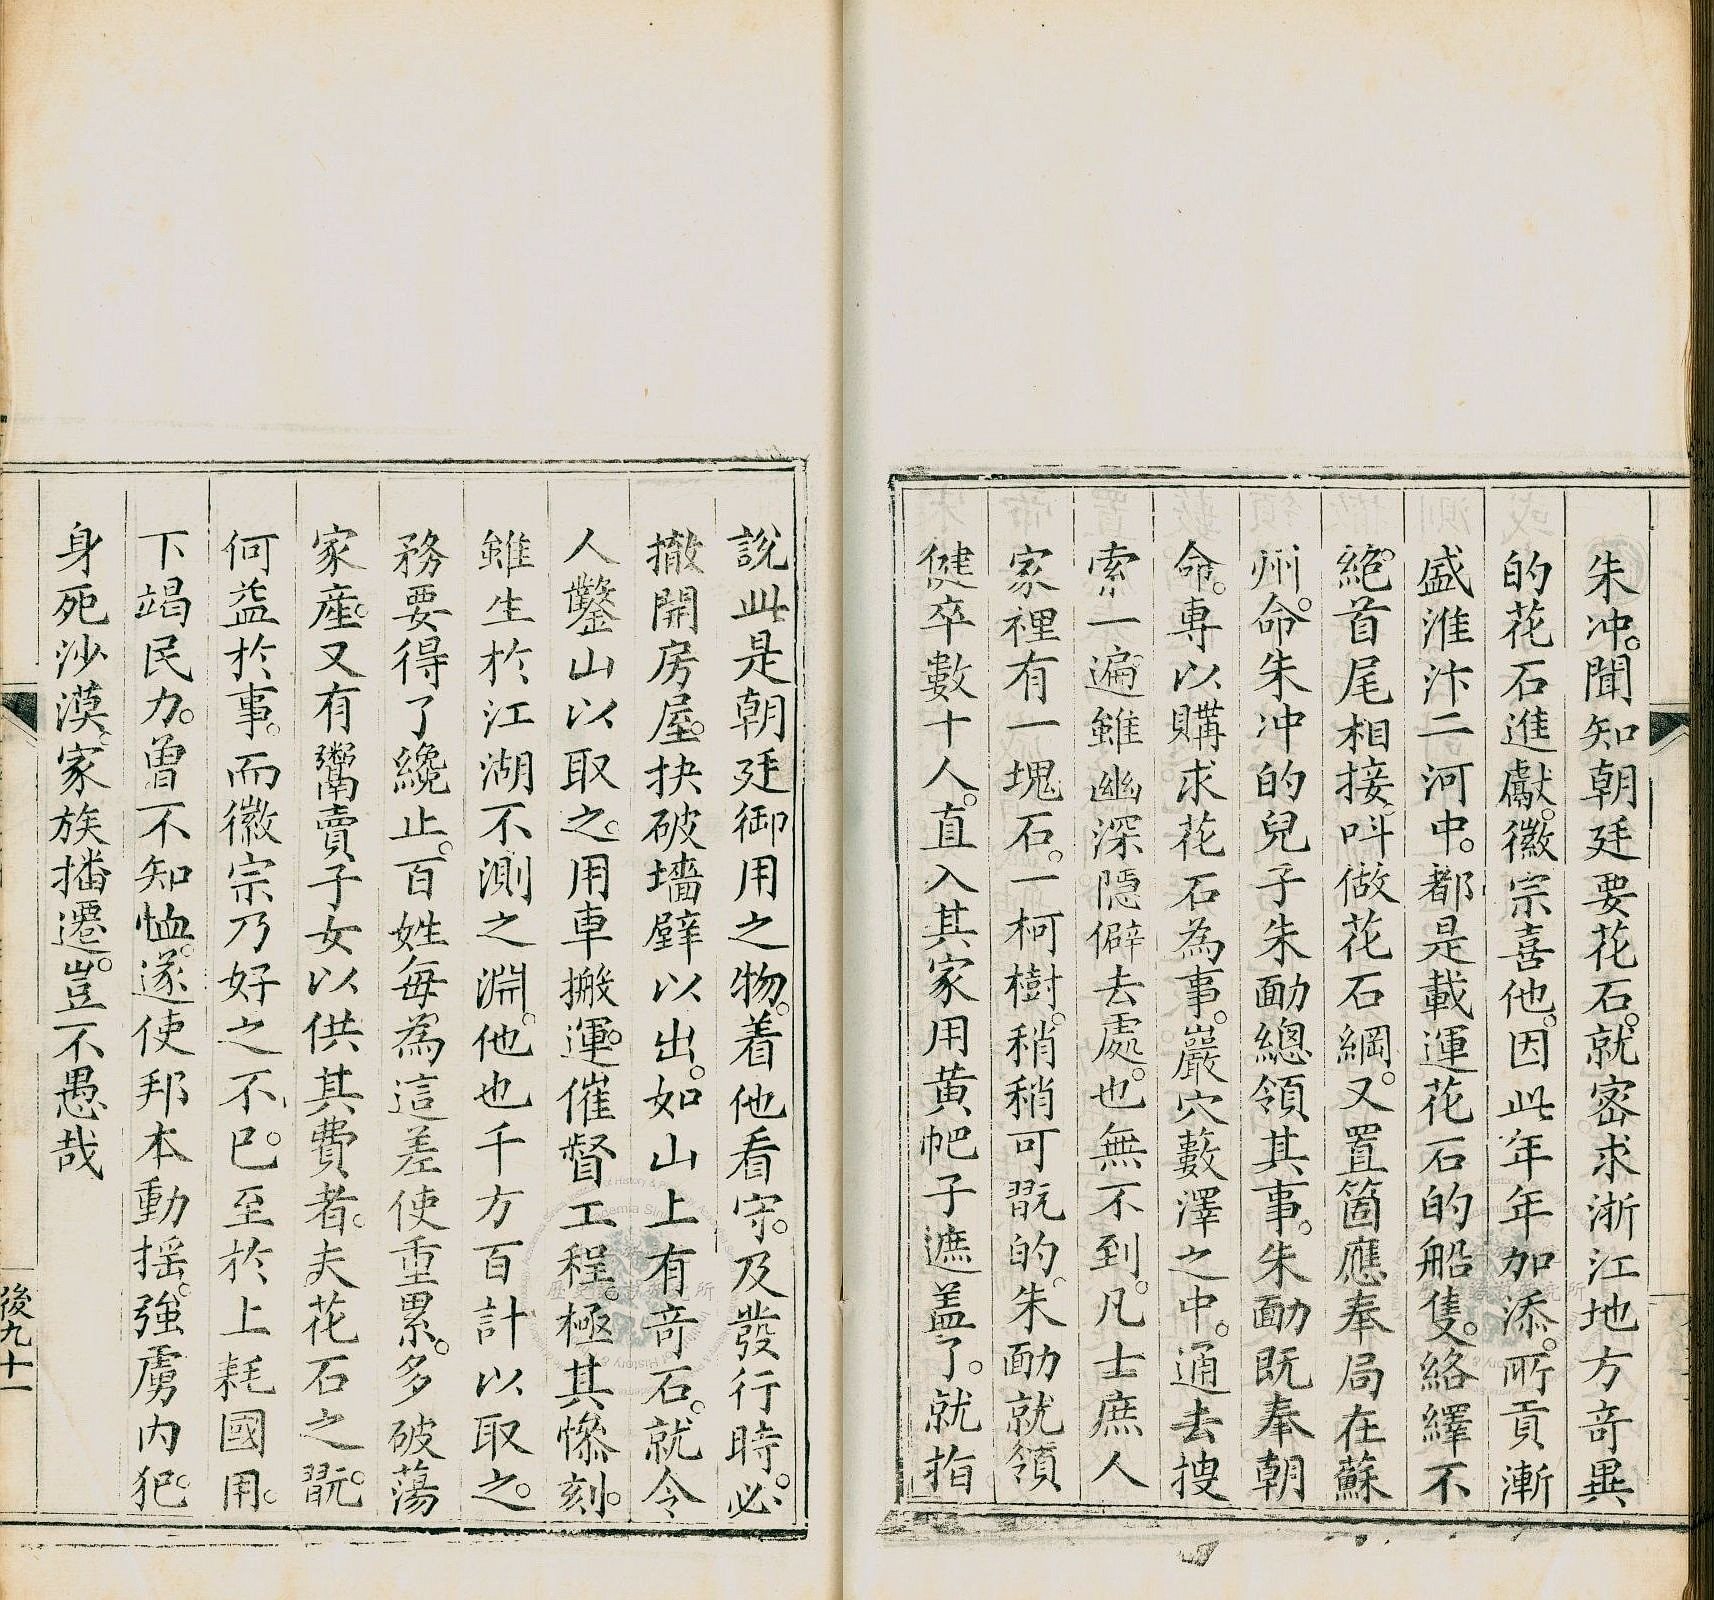 朱冲。聞知朝廷要花石。就密求浙江地方竒異
的花石進獻。徽宗喜他。因此年年加添。所貢漸
盛淮汴二河中。都是載運花石的船隻。絡繹不
絕。首尾相接。呌做花石綱。又置箇應奉局在蘇
州。命朱冲的兒子朱勔總領其事。朱勔既奉朝
命。專以購求花石為事。巖穴藪澤之中。通去搜
索一遍雖幽深隱僻去處。也無不到。凡士庶人
家裡有一塊石。一柯樹。稍稍可翫的。朱勔就領
健卒數十人。直入其家用黃帊子遮盖了。就指
說此是朝廷御用之物。着他看守。及發行時。必
撤開房屋。抉破墻壁以出。如山上有竒石。就令
人鑿山以取之。用車搬運。催督工程。極其慘刻。
雖生於江湖不測之淵。他也千方百計以取之。
務要得了纔止。百姓每為這差使重累。多破蕩
家產。又有鬻賣子女以供其費者。夫花石之翫。
何益於事。而徽宗乃好之不已。至於上耗國用。
下竭民力。曾不知恤。遂使邦本動揺。強虜內犯。
身死沙漠。家族播遷。豈不愚哉
後九十一